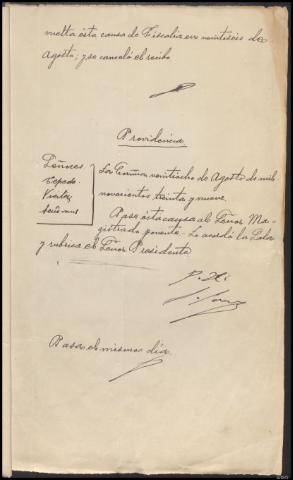 vuelta esta causa de Fiscalía en veintiséis de
Agosto; y se canceló el recibo
Providencia
Señores
La Coruña veintiocho de Agosto de mil
novecientos treinta y nueve.
Pase esta causa al Señor Ma-
gistrado ponente.- Lo acordó la Sala
y rubrica el Señor Presidente
Pasa el mismo día.